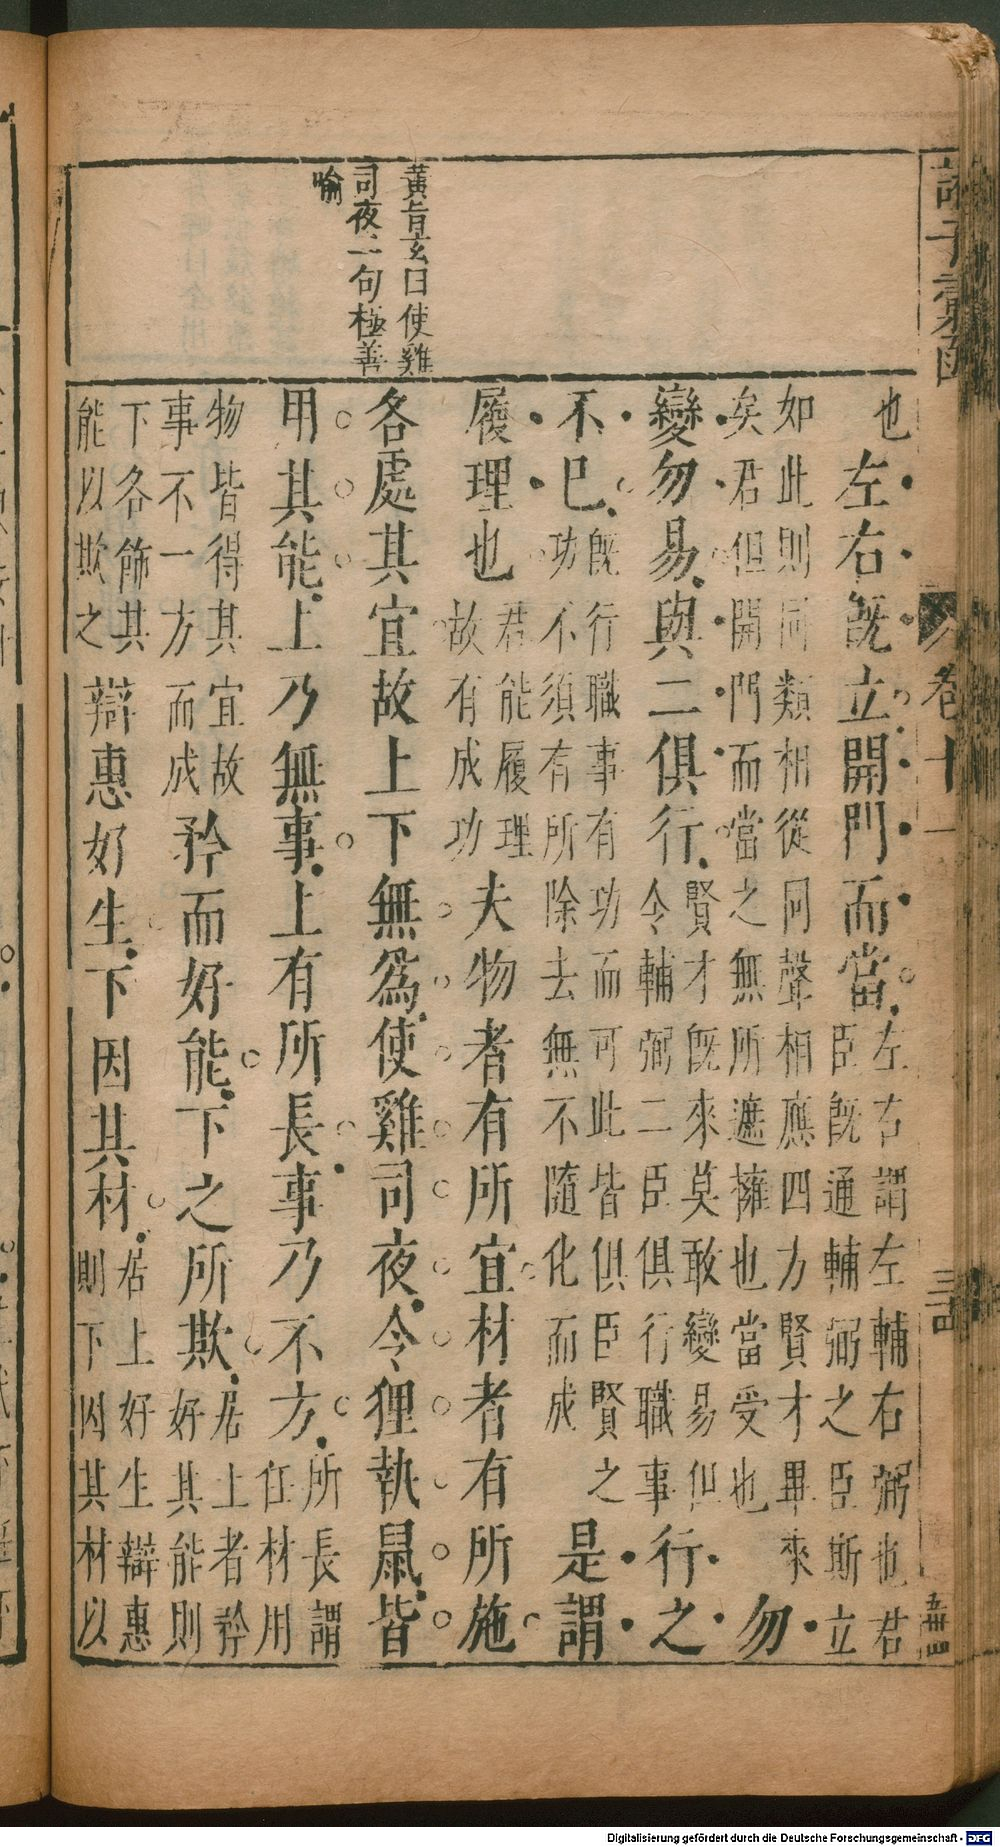 諸子彙函
卷十一
黃旨玄曰使雞
司夜二句極善
喻
也左右既立開門而當左右謂左輔右弼也君臣既通輔弼之臣斯立
如此則同類相從同聲相應四方賢才畢來矣君但開門而當之無所遮擁也當受也勿
變勿易與二俱行賢才既來莫敢變易但令輔弼二臣俱行職事行之
不已既行職事有功而可此皆俱臣賢之功不須有所除去無不隨化而成是謂
履理也君能履理故有成功夫物者有所宜材者有所施
各處其宜故上下無爲使雞司夜令狸執鼠皆
用其能上乃無事上有所長事乃不方所長謂任材用
物皆得其宜故事不一方而成矜而好能下之所欺居上者矜好其能則
下各飾其能以欺之辯惠好生下因其材居上好生辯惠則下因其材以
Digitalisierung gefördert durch die Deutsche Forschungsgemeinschaft - DFG